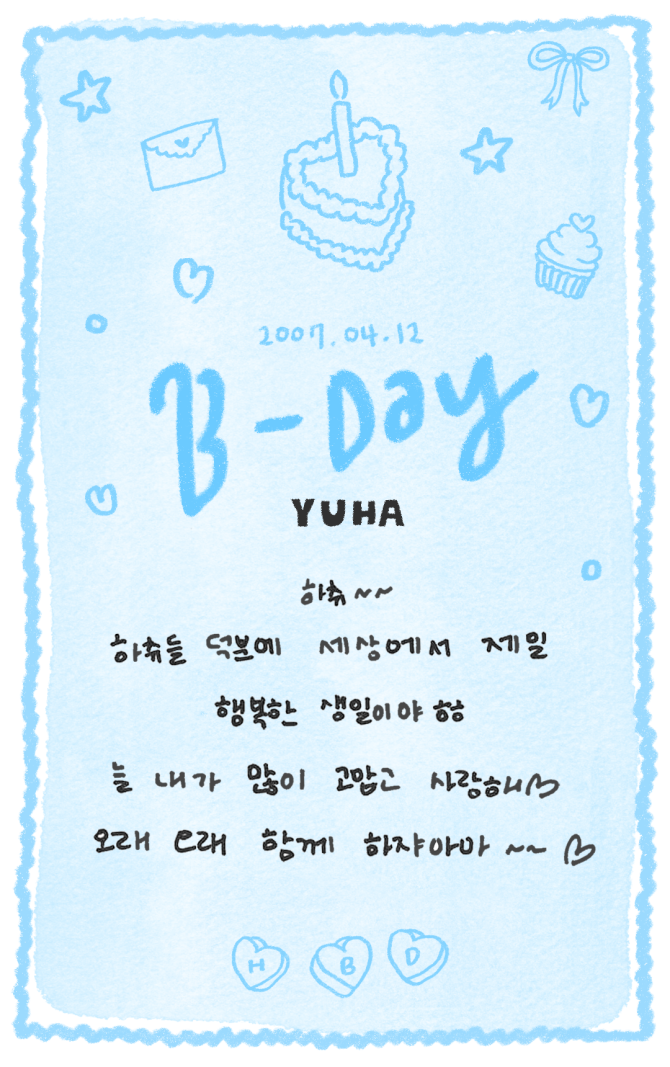 2007.04.12
B-Day
YUHA
하츄~~
하츄들 덕분에 세상에서 제일
행복한 생일이야 ㅎㅎ
늘 내가 많이 고맙고 사랑해♡
오래 오래 함께 하쟈아아 ~~ ♡
H B D